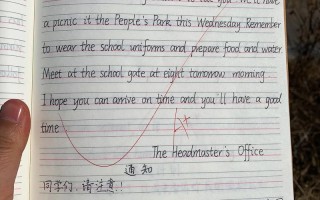 to tell you. We'll have
a picnic it the People's Park this Wednesday. Remember
to wear the school uniforms and prepare food and water.
Meet at the school gate at eight tomorrow morning.
I hope you can arrive on time and you'll have a good
time
A+
The Headmaster's Office
通知
同学们,请注意!